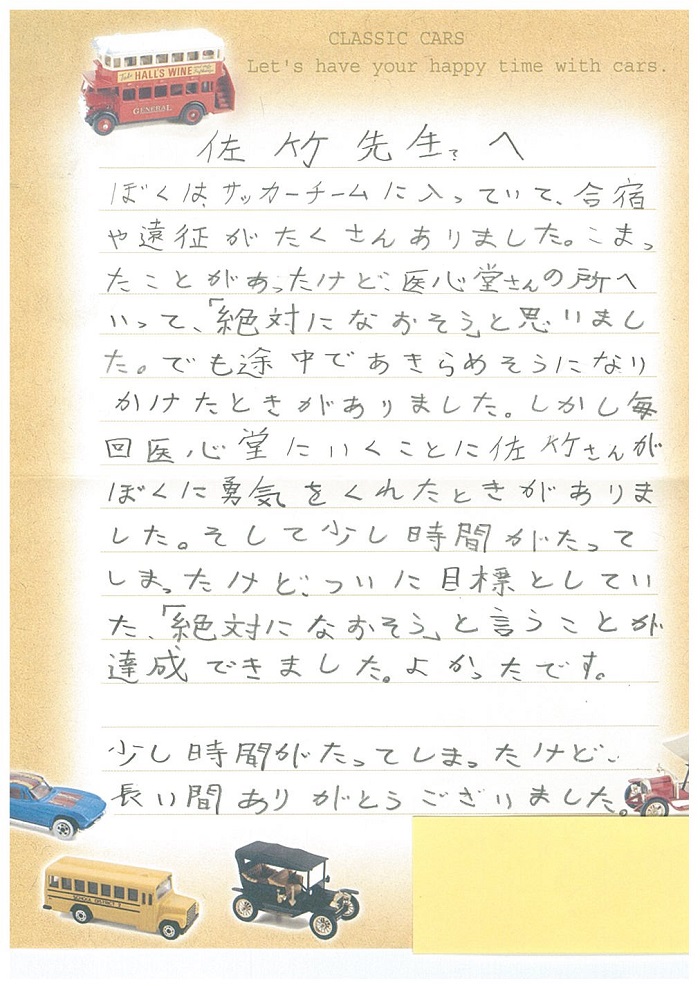 CLASSIC CARS
Let's have your happy time with cars.
HALL'S WINE
GENERAL
佐竹先生へ
ぼくは、サッカーチームに入っていて、合宿
や遠征がたくさんありました。こまっ
たことがあったけど、医心堂さんの所へ
いって、「絶対になおそう」と思いまし
た。でも途中であきらめそうになり
かけたときがありました。しかし毎
回医心堂にいくことに佐竹さんが
ぼくに勇気をくれたときがありま
した。そして少し時間がたって
しまったけど、ついに目標としてい
た、「絶対になおそう」と言うことが
達成できました。よかったです。
少し時間がたってしまったけど、
長い間ありがとうございました。
SCHOOL DISTRICT 2